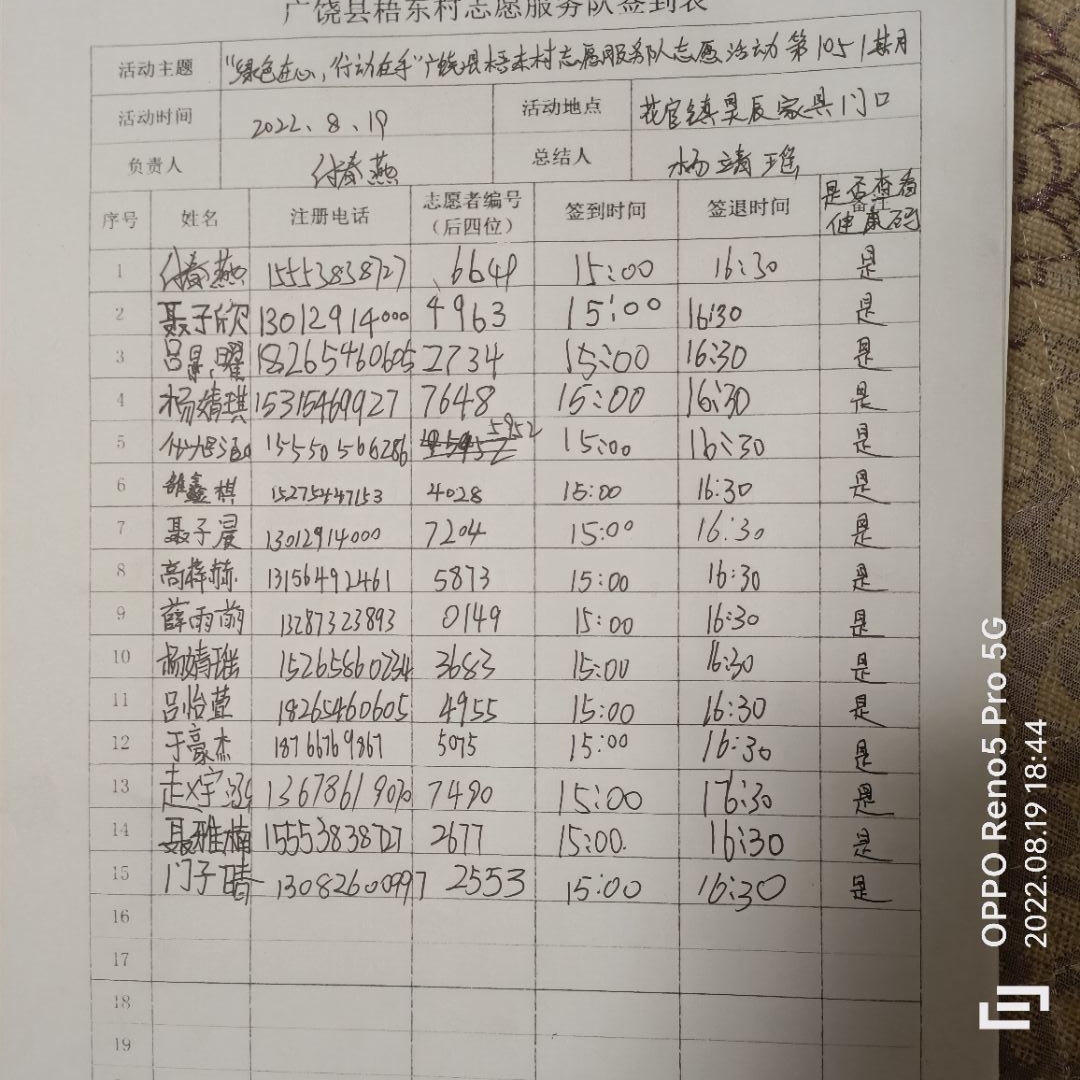 广饶县梧东村志愿服务队签到表
活动主题 "绿色在心,行动在手"广饶县梧东村志愿服务队志愿活动第1051期
活动时间 2022、8、19 活动地点 花官镇昊辰家具门口
负责人 付春燕 总结人 杨靖瑶
序号 姓名 注册电话 志愿者编号(后四位) 签到时间 签退时间 是否查看健康码
1 付春燕 15553838727 6649 15:00 16:30 是
2 聂子欣 13012914000 4963 15:00 16:30 是
3 吕 曜 18265460605 2734 15:00 16:30 是
4 杨婧琪 15315469927 7648 15:00 16:30 是
5 155501566286 5952 15:00 16:30 是
6 鑫棋 15275447153 4028 15:00 16:30 是
7 聂子晨 13012914000 7204 15:00 16:30 是
8 高梓赫 13156492461 5873 15:00 16:30 是
9 薛雨萌 13287323893 0149 15:00 16:30 是
10 杨婧瑶 15265860734 3683 15:00 16:30 是
11 吕怡萱 18265460605 4955 15:00 16:30 是
12 于豪杰 18766769867 5075 15:00 16:30 是
13 赵宇 13678619070 7490 15:00 16:30 是
14 聂雅楠 15553838727 2677 15:00. 16:30 是
15 门子晴 13082600997 2553 15:00 16:30 是
16
17
18
19
OPPO Reno5 Pro 5G
2022.08.19 18:44